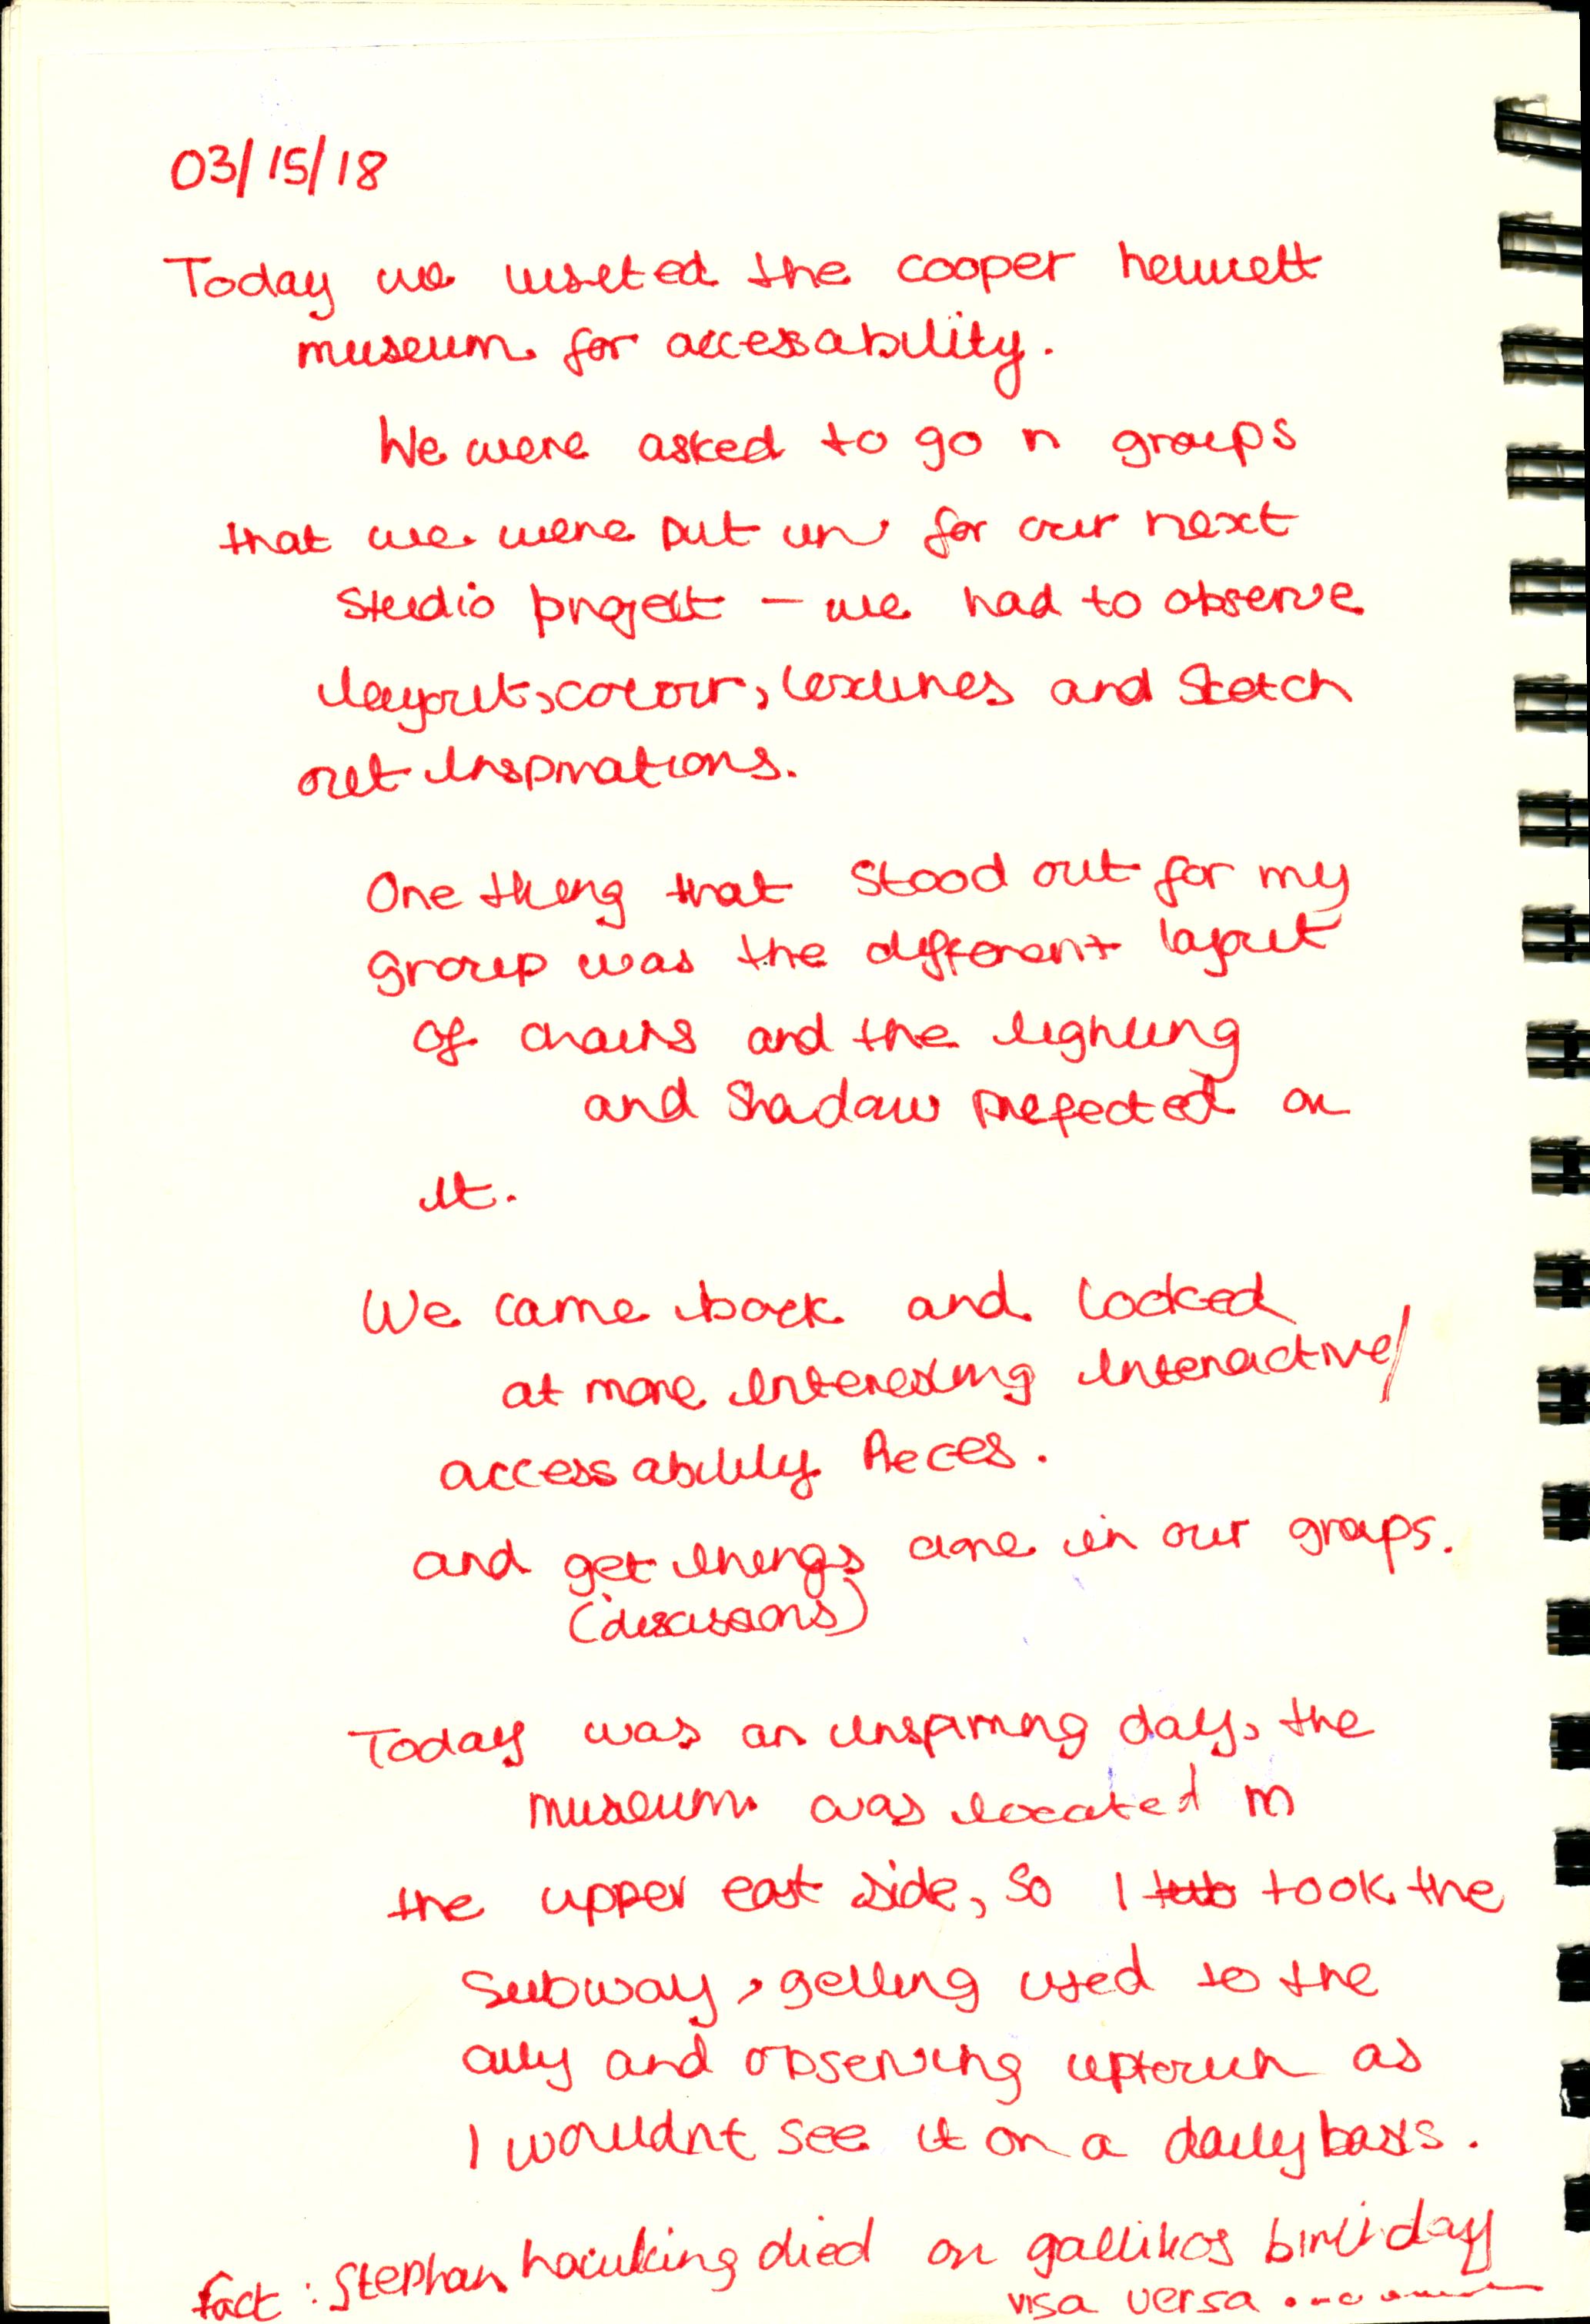 03/15/18
Today we visited the cooper hewitt
museum for accessability.
We were asked to go in groups
that we were put in for our next
studio project - we had to observe
layout, colour, textures and Scetch
out inspirations.
One thing that stood out for my
group was the different layout
of chairs and the lighting
and shadow prefected on
it.
We came back and looked
at more interesting interactive/
accessability Pieces.
and get things done in our groups.
(discussions)
Today was an inspiring day, the
museum was located in
the upper east side, so I took the
subway, getting used to the
city and observing uptown as
I wouldnt see it on a daily basis.
fact : Stephan hawking died on gallilos birthday
visa versa ......